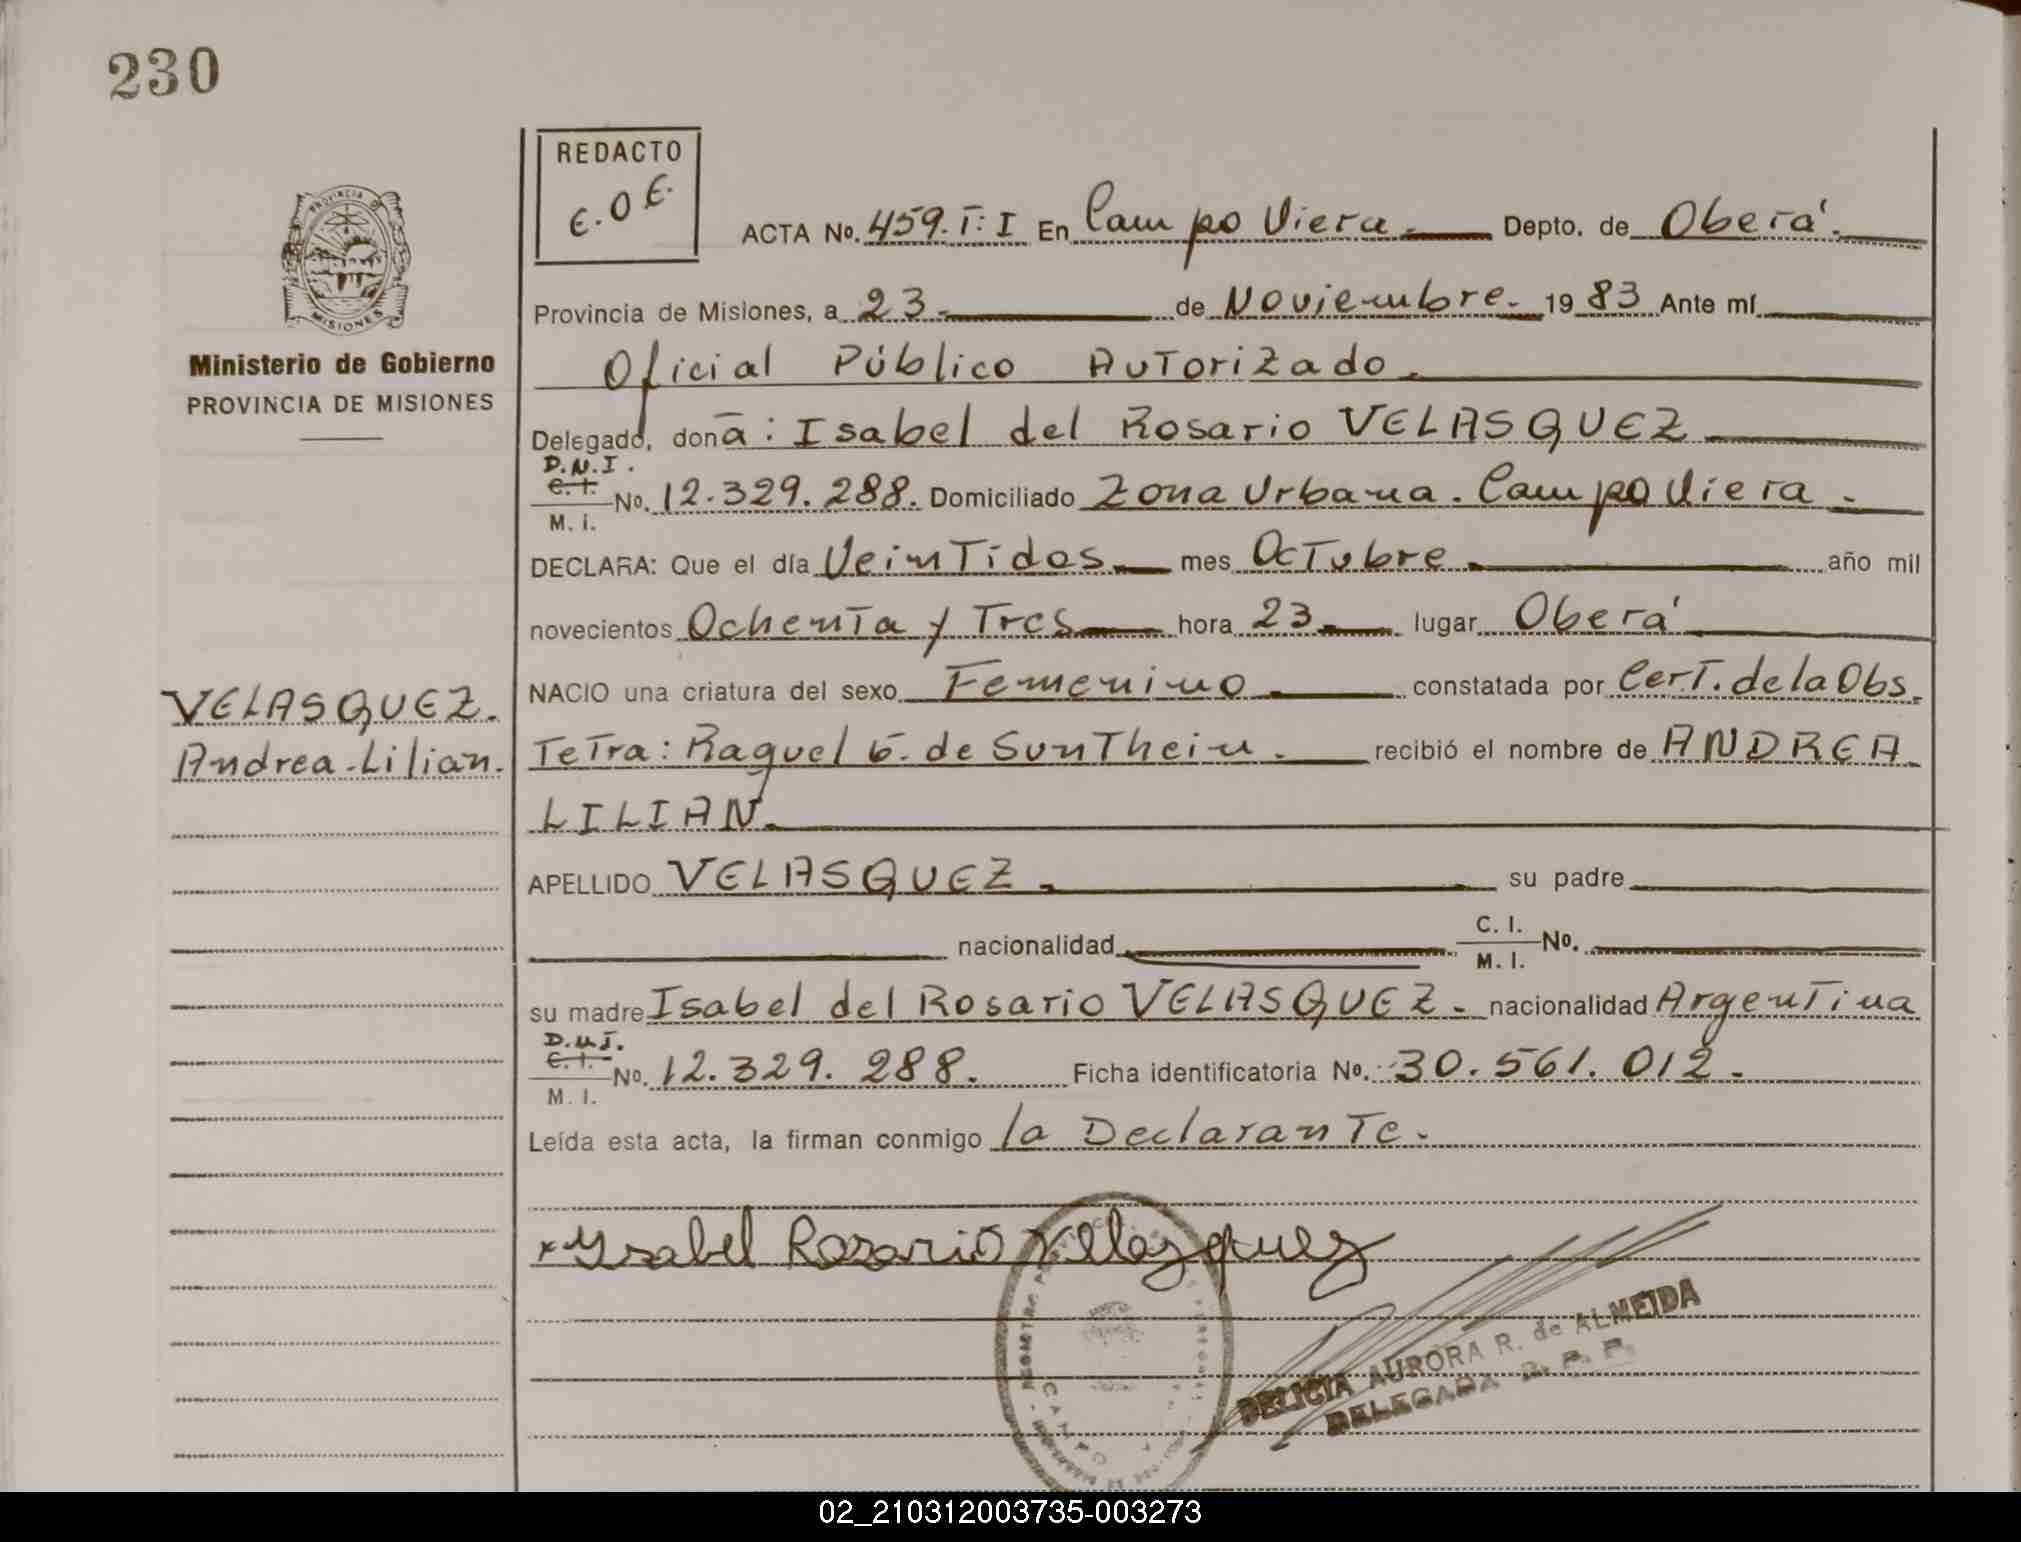 230
REDACTO
E.O.E.
PROVINCIA DE
MISIONES
Ministerio de Gobierno
PROVINCIA DE MISIONES
ACTA No. 459. T: I En Campo Viera. Depto. de Oberá.
Provincia de Misiones, a 23. de Noviembre. 1983 Ante mí
Oficial Público Autorizado.
Delegado, doña: Isabel del Rosario VELASQUEZ
D.N.I.
C.I.
M. I. No. 12.329.288. Domiciliado Zona Urbana. Campo Viera.
DECLARA: Que el día Veintidos mes Octubre año mil
novecientos Ochenta y Tres hora 23 lugar Oberá
NACIO una criatura del sexo Femenino constatada por Cert. de la Obs.
VELASQUEZ.
Andrea Lilian.
Tetra: Raquel G. de Sunthein. recibió el nombre de ANDREA
LILIAN.
APELLIDO VELASQUEZ. su padre
nacionalidad C. I. M. I. No.
su madre Isabel del Rosario VELASQUEZ. nacionalidad Argentina
D.N.I.
C.I.
M. I. No. 12.329.288. Ficha identificatoria No. 30.561.012.
Leída esta acta, la firman conmigo la Declarante.
x Ysabel Rosario Velazquez
CAMPO
DELICIA AURORA R. de ALMEIDA
DELEGADA R. P. P.
02_210312003735-003273